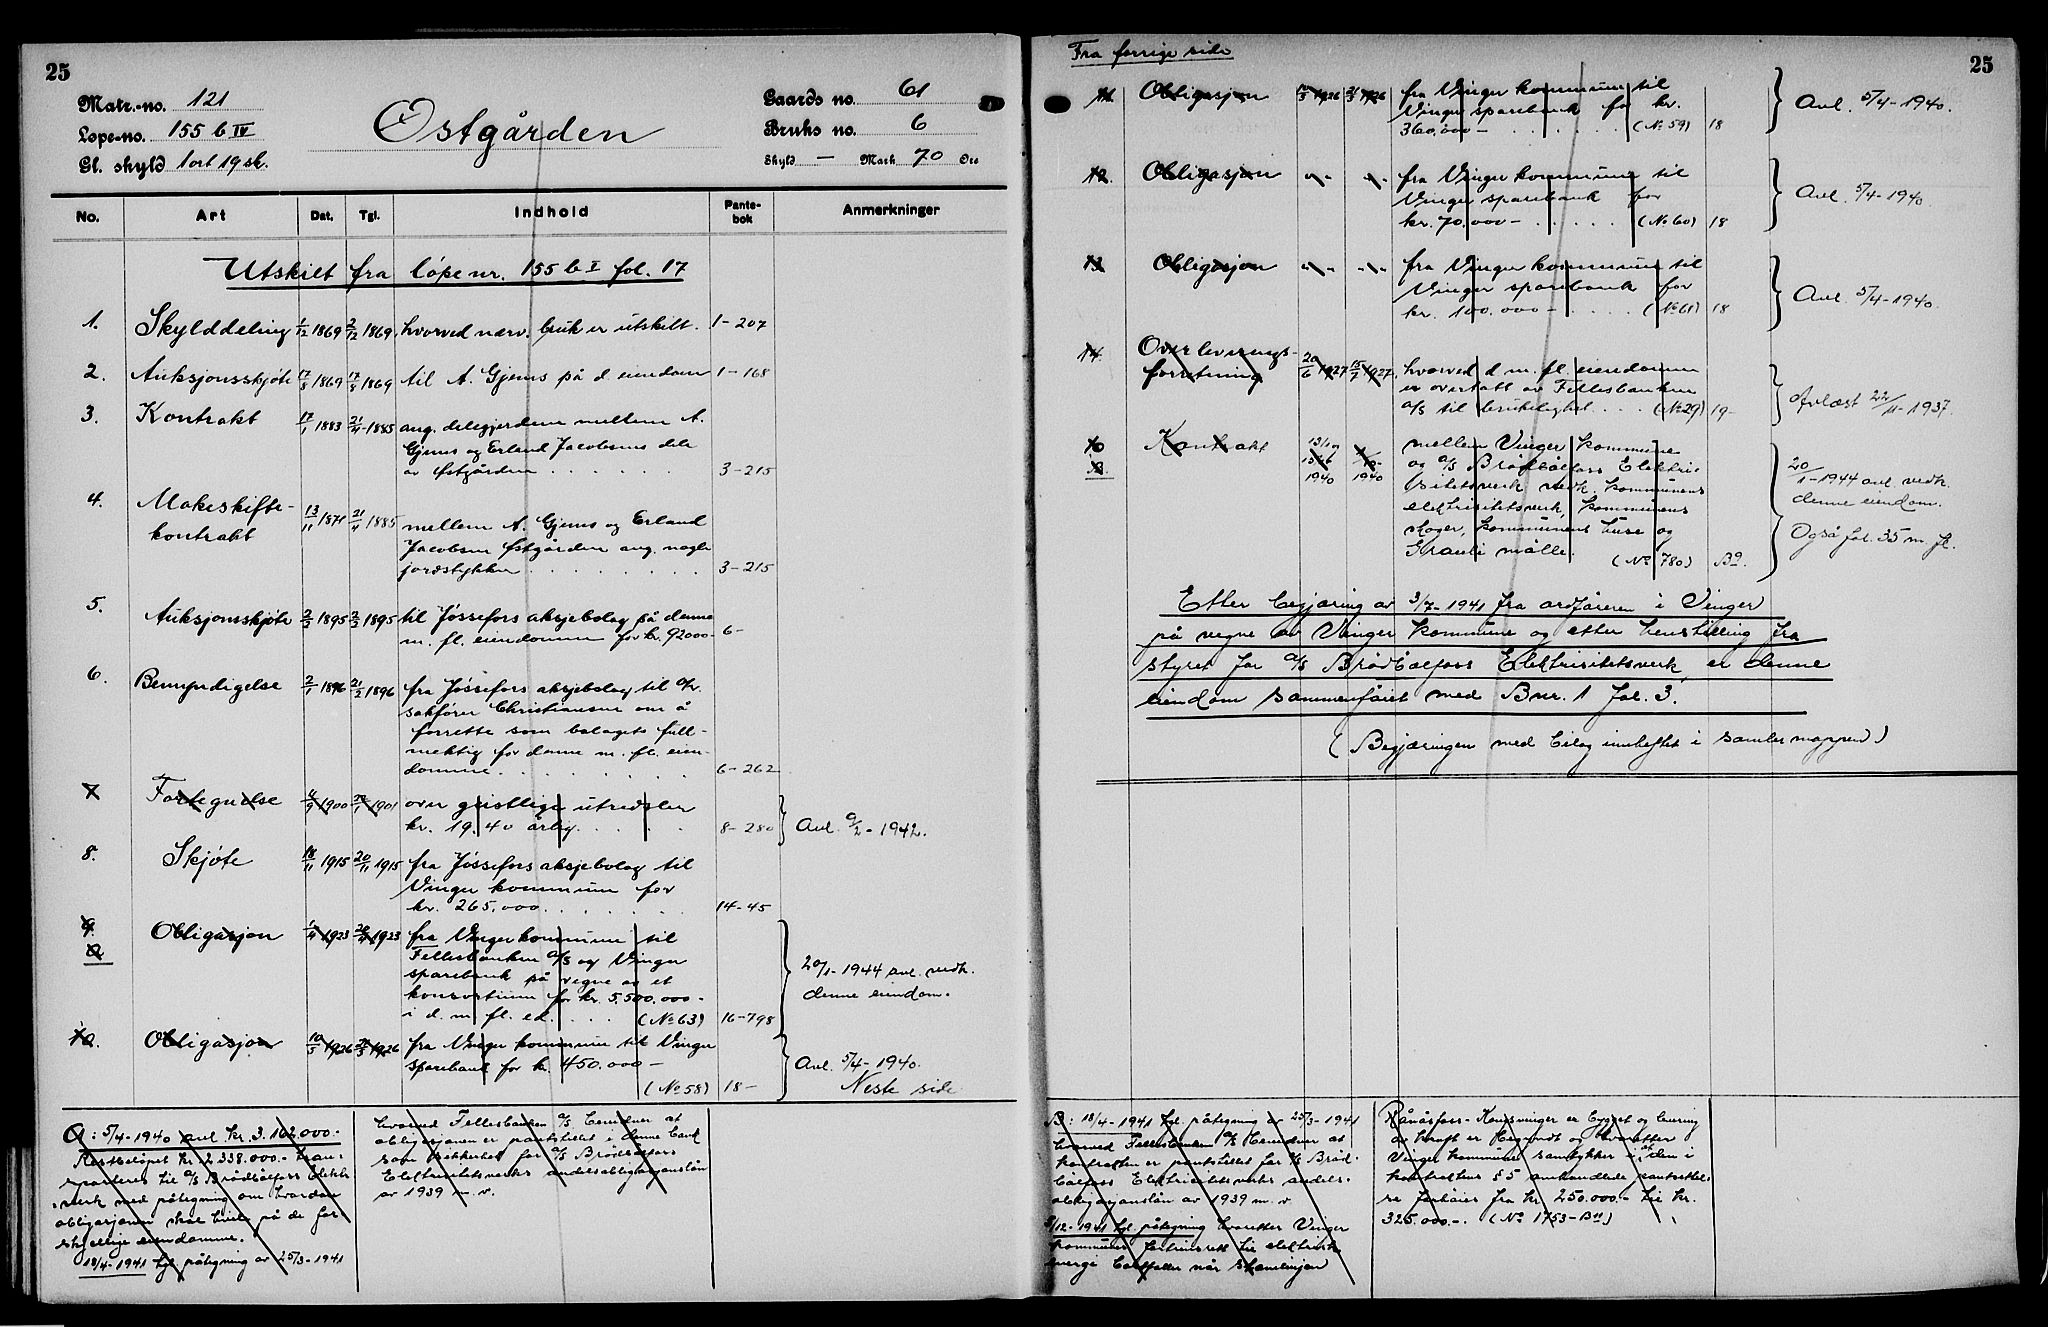 25
Matr.-no. 121
Løpe-no. 155 b IV
Gl. skyld 1 ort 19 sk.
Østgården
Gaards no. 61
Bruks no. 6
Skyld — Mark 70 Øre
No. Art Dat. Tgl. Indhold Pante-bok Anmerkninger
Utskilt fra løpenr. 155 b I fol. 17
1. Skylddeling 1/12 1869 2/12 1869 hvorved nærv. bruk er utskilt. 1-207
2. Auksjonsskjøte 17/8 1869 17/8 1869 til A. Gjems på d. eiendom 1-168
3. Kontrakt 17/1 1883 21/4-1885 ang. delegjerdene mellem A.
Gjems og Erland Jacobsens dele
av Østgården . . . . . . 3-215
4. Makeskifte-
kontrakt 13/11 1874 21/4 1885 mellem A. Gjems og Erland
Jacobsen Østgården ang. nogle
jordstykker . . . . . . . . 3-215
5. Auksjonsskjøte 2/3 1895 2/3 1895 til Jössefors aksjebolag på denne
m. fl. eiendomme for kr. 92000- 6-
6. Bemyndigelse 2/1 1896 21/2 1896 fra Jössefors aksjebolag til o.r.
sakfører Christiansen om å
forrette som bolagets full-
mektig for denne m. fl. eien-
domme . . . . . . . . 6-262
7 Fortegnelse 1900 1901 over geistlige utredsler
kr. 19.40 årlig. . . . . 8-280 Avl. 9/2-1942.
8. Skjøte 18/11 1915 20/11 1915 fra Jössefors aksjebolag til
Vinger kommune for
kr. 265.000 . . . . . . . 14-45
9. Obligasjon 1/4 1923 1923 fra Vinger kommune til
a Fellesbanken A/S og Vinger
sparebank på vegne av et
konsortium for kr. 5.500.000-
i d. m. fl. ed. . . . . (No 63) 16-798
20/1-1944 avl. vedk.
denne eiendom.
10. Obligasjon 10/3 1926 1926 fra Vinger kommune til Vinger
sparebank for kr. 450.000-
(No 58) 18-
Avl. 5/4-1940.
Neste side
a: 5/4-1940 avl kr. 3.162.000.-
Restbeløpet kr. 2.338.000.- tran-
sporteres til A/S Brødbølfoss Elektr.-
verk med påtegning om hvordan
obligasjonen skal hvile på de for-
skjellige eiendomme.
18/4-1941 tgl. påtegning av 25/3-1941
hvorved Fellesbanken A/S bemerker at
obligasjonen er pantstillet i denne bank
som sikkerhet for A/S Brødbølfoss
Elektrisitetsverks andelsobligasjonslån
av 1939 m. v.
Fra forrige side
25
11. Obligasjon 10/3 1926 1926 fra Vinger kommune til
Vinger sparebank for kr.
360.000- . . . . . . (No 59) 18
Avl. 5/4-1940.
12. Obligasjon -"- -"- fra Vinger kommune til
Vinger sparebank for
kr. 70.000- . . . . . (No 60) 18
Avl. 5/4-1940.
13. Obligasjon -"- -"- fra Vinger kommune til
Vinger sparebank for
kr. 100.000- . . . . (No 61) 18
Avl. 5/4-1940.
14. Overleverings-
forretning 20/6 1927 15/7 1927 hvorved d. m. fl. eiendomme
er overtatt av Fellesbanken
A/S til brukelighet . . . (No 29) 19-
Avlæst 22/11-1937.
Kontrakt 1940 1940 mellem Vinger kommune
og A/S Brødbølfoss Elektri-
sitetsverk vedk. kommunens
elektrisitetsverk, kommunens
skoger, kommunens huse og
Granli mølle. (No 780) B9.
20/1-1944 avl. vedk.
denne eiendom.
Også fol. 35 m. fl.
Etter begjæring av 3/7-1941 fra ordføreren i Vinger
på vegne av Vinger kommune og etter henstilling fra
styret for A/S Brødbølfoss Elektrisitetsverk er denne
eiendom sammenføiet med Bnr. 1 fol. 3.
(Begjæringen med bilag innheftet i samlermappen)
B: 18/4-1941 tgl. påtegning av 25/3-1941
hvorved Fellesbanken A/S bemerker at
kontrakten er pantstillet for A/S Brød-
bølfoss Elektrisitetsverks andels-
obligasjonslån av 1939 m. v.
/12-1941 tgl. påtegning hvoretter Vinger
kommunes fortrinsrett til elektrisk
energi bortfaller når stamlinjen
Rånåsfoss-Kongsvinger er bygget og levering
av kraft er begyndt og hvoretter
Vinger kommune samtykker i at den i
kontraktens § 5 omhandlede pantsettel-
se forhøies fra kr. 250.000.- til kr.
325.000.-. (No 1753-B11)